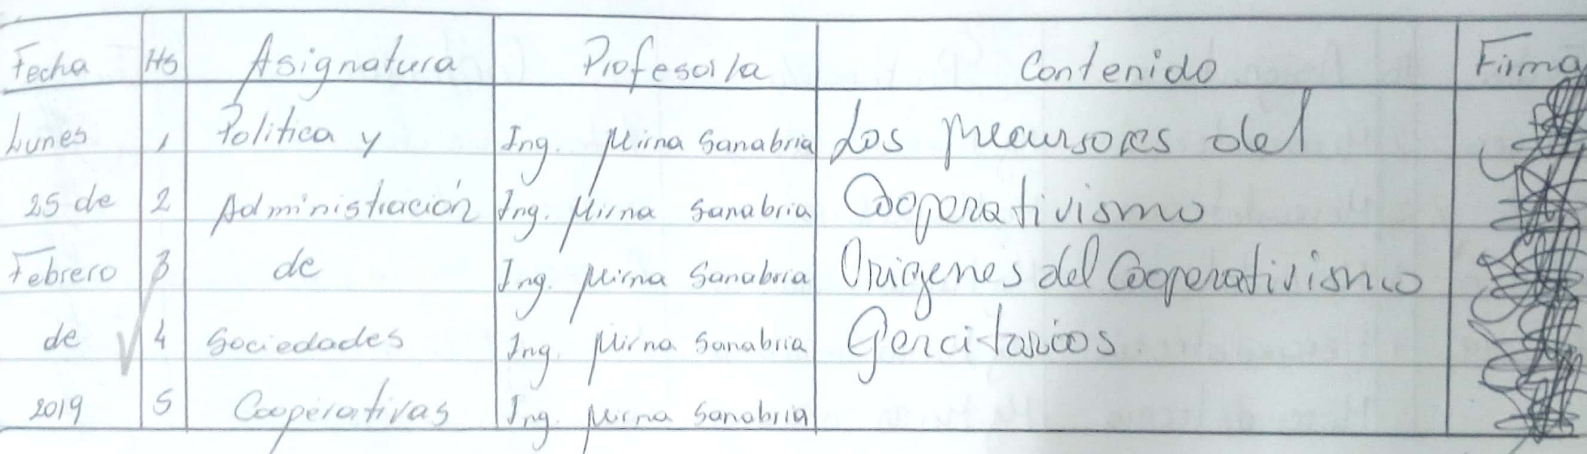 Fecha Hs Asignatura Profesor/a Contenido Firma
Lunes 1 Política y Ing. Mirna Sanabria Los precursores del
25 de 2 Administración Ing. Mirna Sanabria Cooperativismo
Febrero 3 de Ing. Mirna Sanabria Orígenes del Cooperativismo
de 4 Sociedades Ing. Mirna Sanabria
2019 5 Cooperativas Ing. Mirna Sanabria